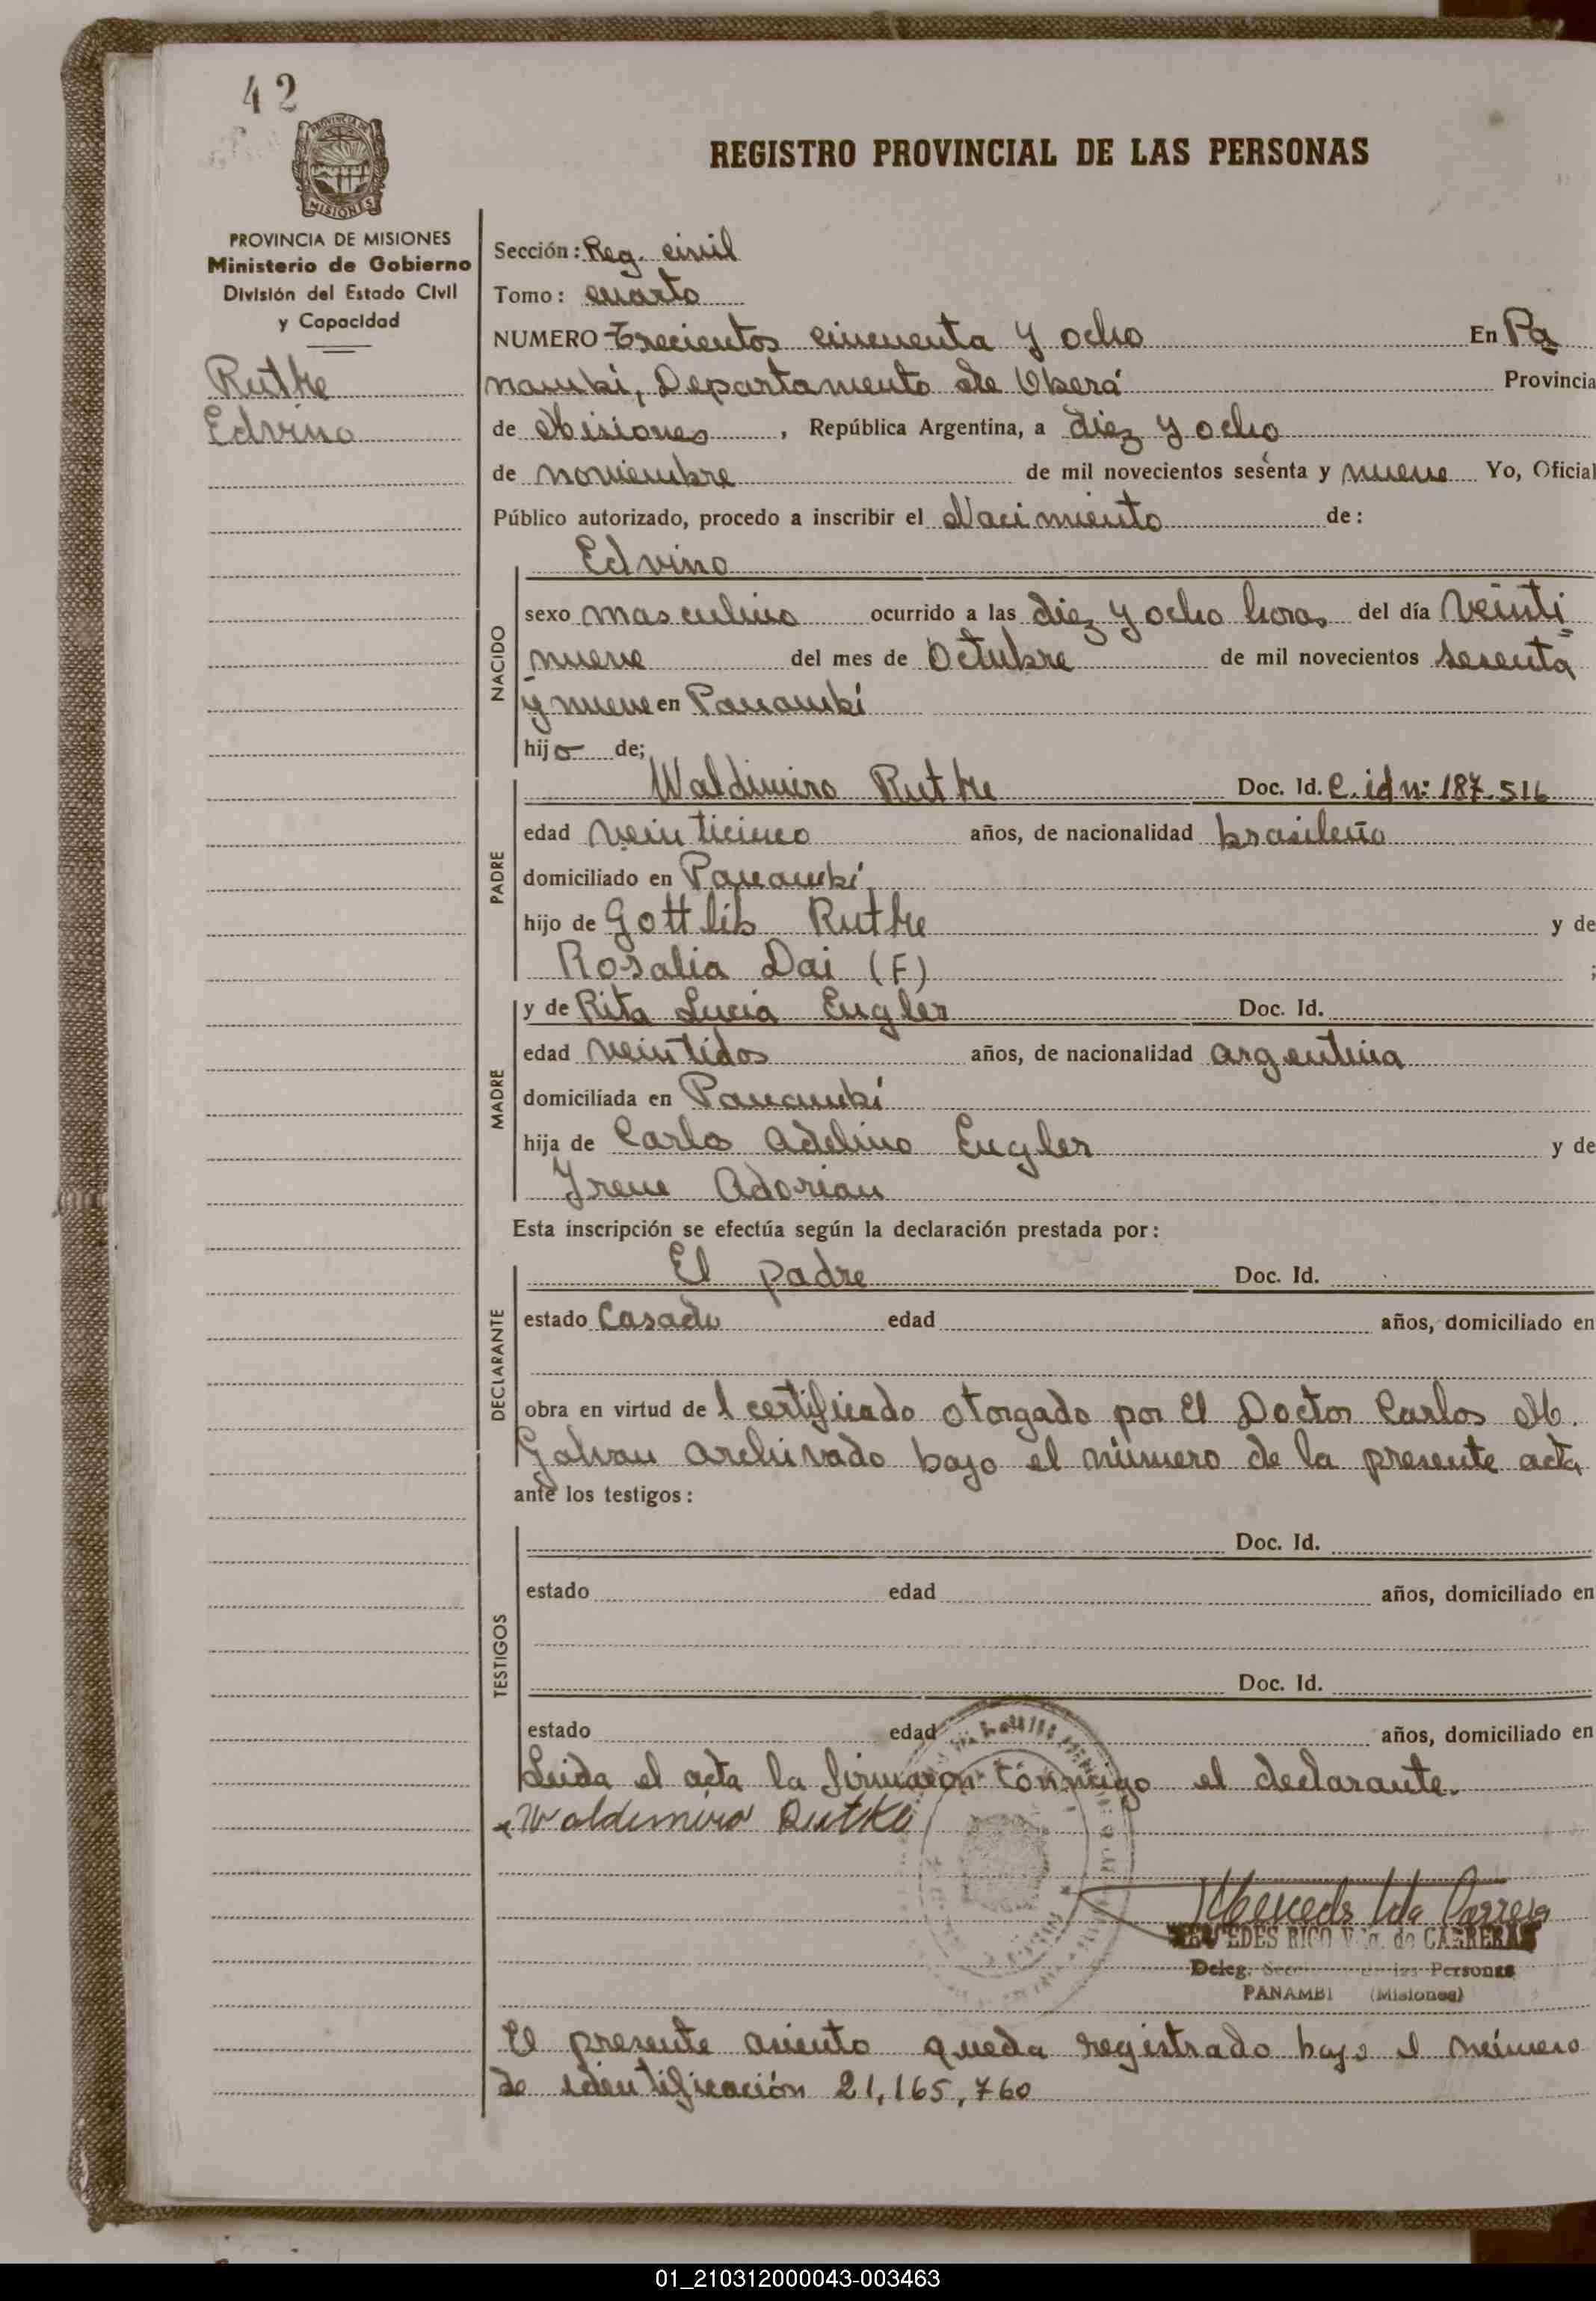 42
PROVINCIA DE MISIONES
MISIONES
PROVINCIA DE MISIONES
Ministerio de Gobierno
División del Estado Civil
y Capacidad
Ruthe
Edvino
REGISTRO PROVINCIAL DE LAS PERSONAS
Sección: Reg. civil
Tomo: cuarto
NUMERO Trecientos cincuenta y ocho En Pa
nambí, Departamento de Oberá Provincia
de Misiones, República Argentina, a diez y ocho
de noviembre de mil novecientos sesenta y nueve Yo, Oficial
Público autorizado, procedo a inscribir el Nacimiento de:
Edvino
NACIDO
sexo masculino ocurrido a las diez y ocho horas del día Veinti
nueve del mes de Octubre de mil novecientos sesenta
y nueve en Panambí
hijo de;
PADRE
Waldimiro Ruthe Doc. Id. C. id n: 187.516
edad veinticinco años, de nacionalidad brasileño
domiciliado en Panambí
hijo de Gottlib Ruthe y de
Rosalia Dai (F) ;
MADRE
y de Rita Lucia Engler Doc. Id.
edad veintidos años, de nacionalidad argentina
domiciliada en Panambí
hija de Carlos Adelino Engler y de
Irene Adorian
Esta inscripción se efectúa según la declaración prestada por:
DECLARANTE
El padre Doc. Id.
estado Casado edad años, domiciliado en
obra en virtud de l certificado otorgado por El Doctor Carlos M.
Galvan archivado bajo el número de la presente acta
ante los testigos:
TESTIGOS
Doc. Id.
estado edad años, domiciliado en
Doc. Id.
estado edad años, domiciliado en
Leida el acta la firmaron conmigo el declarante.
Waldimiro Rutke
MERCEDES RICO Vda. de CARRERAS
Deleg. Secc. de las Personas
PANAMBI (Misiones)
El presente asiento queda registrado bajo el número
de identificación 21,165,760
01_210312000043-003463